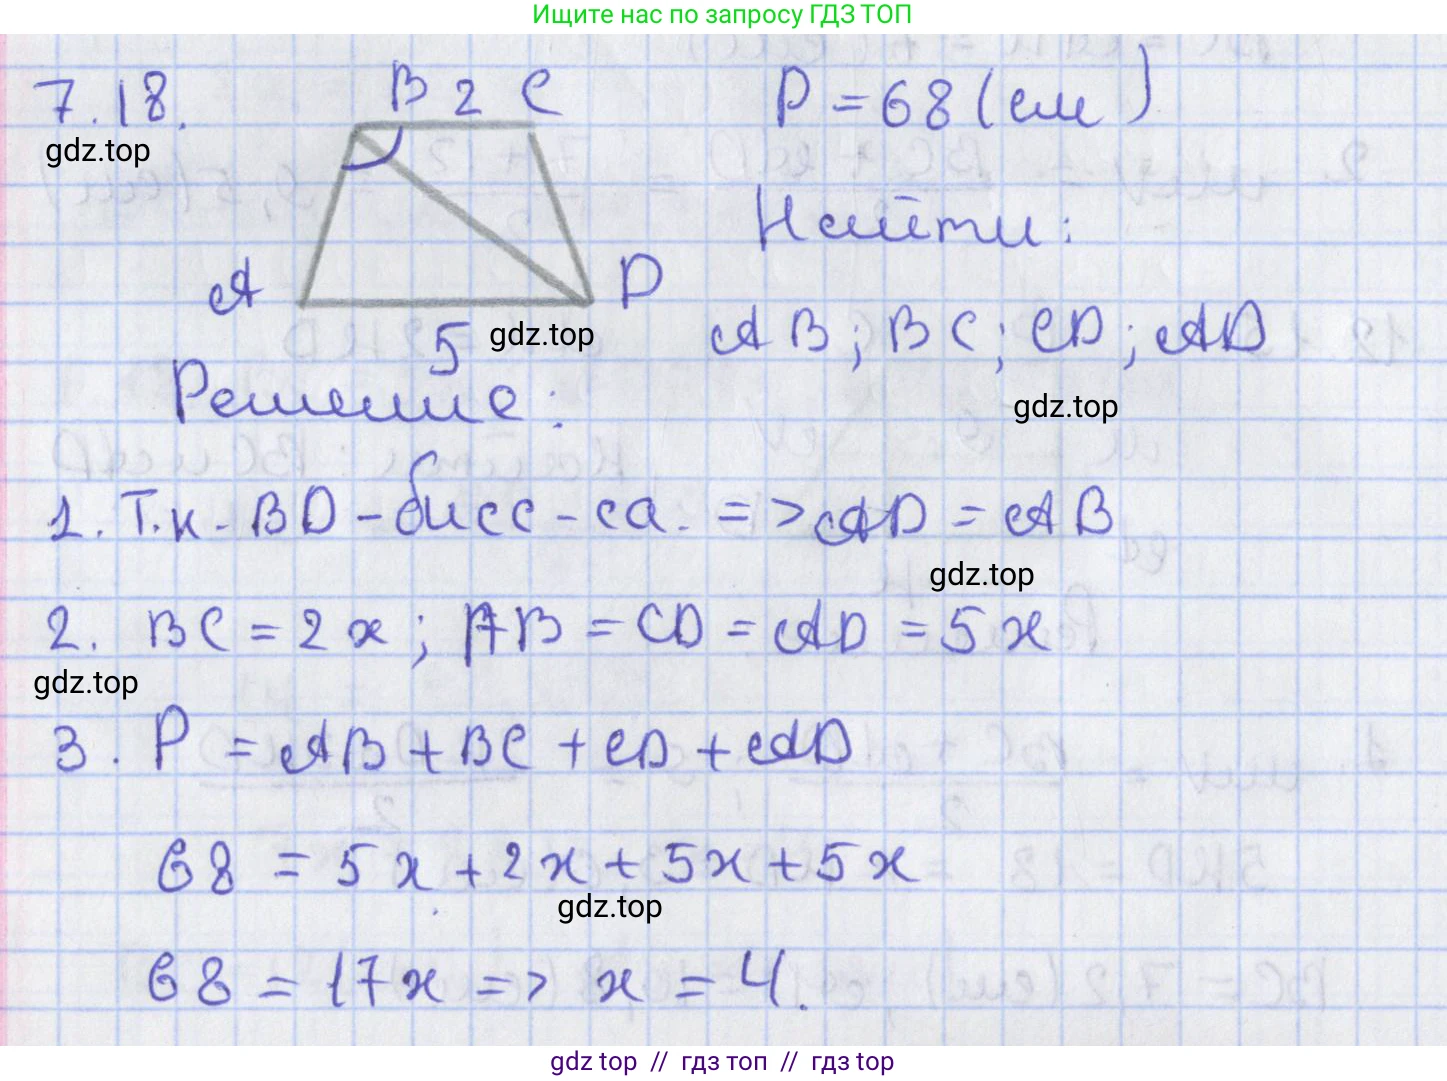 Ищите нас по запросу ГДЗ ТОП
7.18.
gdz.top
B 2 C
P = 68 (см)
Найти:
A
D
5
gdz.top
AB; BC; CD; AD
gdz.top
Решение:
1. Т.к. BD - бисс-са. => AD = AB
gdz.top
2. BC = 2x; AB = CD = AD = 5x
gdz.top
3. P = AB + BC + CD + AD
68 = 5x + 2x + 5x + 5x
gdz.top
68 = 17x => x = 4.
gdz top // гдз топ // гдз top